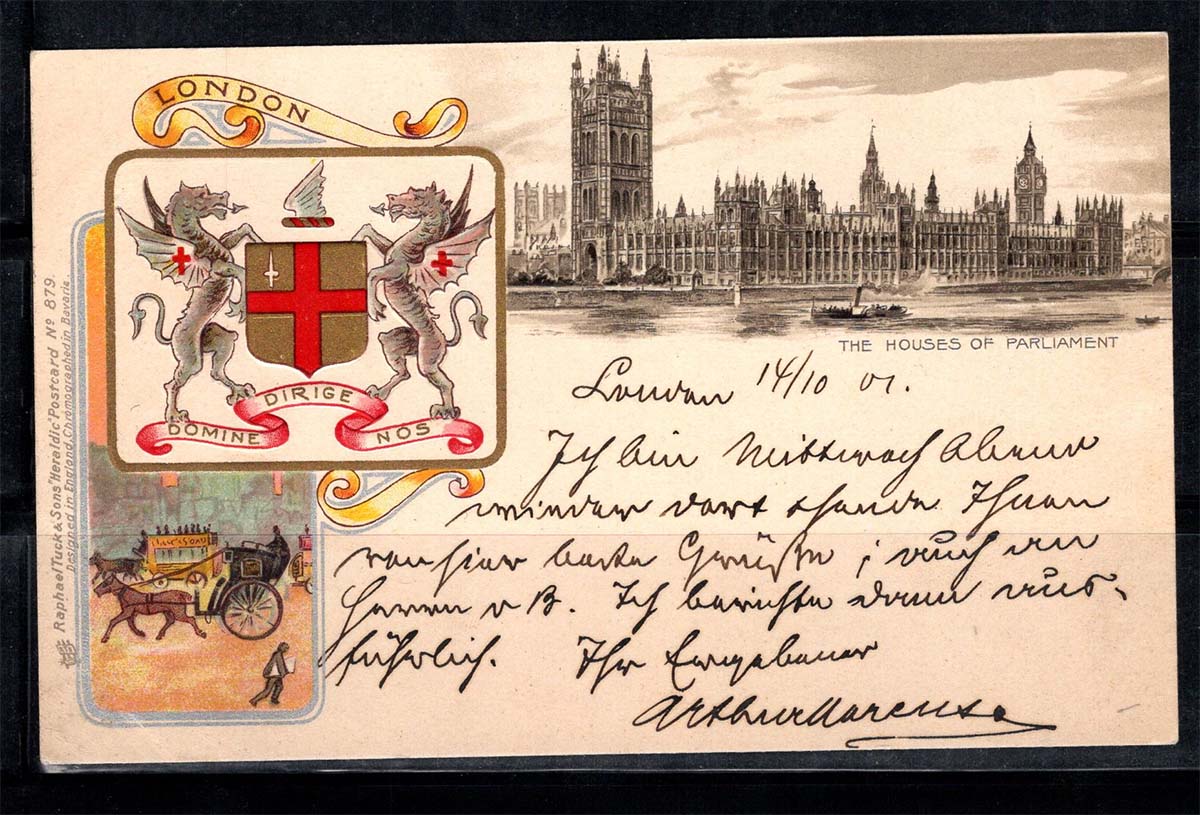 LONDON
DOMINE DIRIGE NOS
THE HOUSES OF PARLIAMENT
Raphael Tuck & Sons "Heraldic" Postcard Nº 879.
Designed in England, Chromographed in Bavaria.
London 14/10 01.
Ich bin Mittwoch Abend
wieder dort & sende Ihnen
von hier beste Grüße; auch an
Herrn v B. Ich berichte dann aus-
führlich. Ihr Ergebener
Arthur Marcus